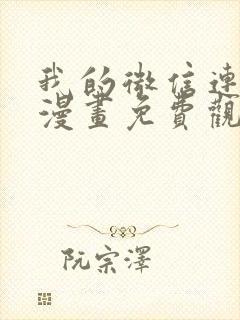 我的微信連
漫畫免費觀
阮宗澤